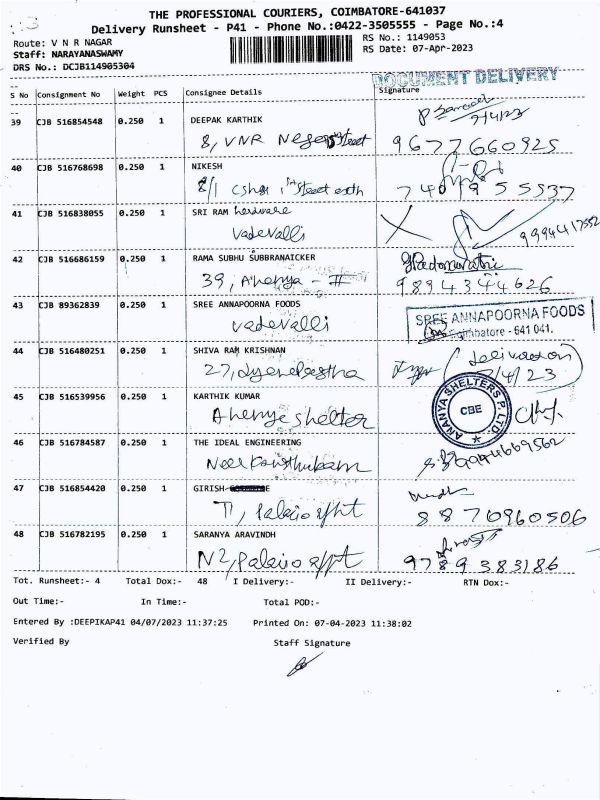 THE PROFESSIONAL COURIERS, COIMBATORE-641037
Delivery Runsheet - P41 - Phone No.:0422-3505555 - Page No.:4
Route: V N R NAGAR
RS No.: 1149053
Staff: NARAYANASWAMY
RS Date: 07-Apr-2023
DRS No.: DCJB114905304
DOCUMENT DELIVERY
S No Consignment No Weight PCS Consignee Details Signature
39 CJB 516854548 0.250 1 DEEPAK KARTHIK
8, VNR 9677660925
40 CJB 516768698 0.250 1 NIKESH
8/1 street
41 CJB 516838055 0.250 1 SRI RAM hardware
Vadevalli 9994417552
42 CJB 516686159 0.250 1 RAMA SUBHU SUBBRANAICKER
39, Ahenya - II 9894344626
43 CJB 89362839 0.250 1 SREE ANNAPOORNA FOODS
SREE ANNAPOORNA FOODS
Vadevalli Coimbatore - 641 041.
44 CJB 516480251 0.250 1 SHIVA RAM KRISHNAN
27, /4/23
45 CJB 516539956 0.250 1 KARTHIK KUMAR
Ahenye shelter
ANANYA SHELTERS P. LTD.
CBE
46 CJB 516784587 0.250 1 THE IDEAL ENGINEERING
47 CJB 516854420 0.250 1 GIRISH
8870960506
48 CJB 516782195 0.250 1 SARANYA ARAVINDH
N2, Palazio appt 9789383186
Tot. Runsheet:- 4 Total Dox:- 48 I Delivery:- II Delivery:- RTN Dox:-
Out Time:- In Time:- Total POD:-
Entered By :DEEPIKAP41 04/07/2023 11:37:25 Printed On: 07-04-2023 11:38:02
Verified By Staff Signature